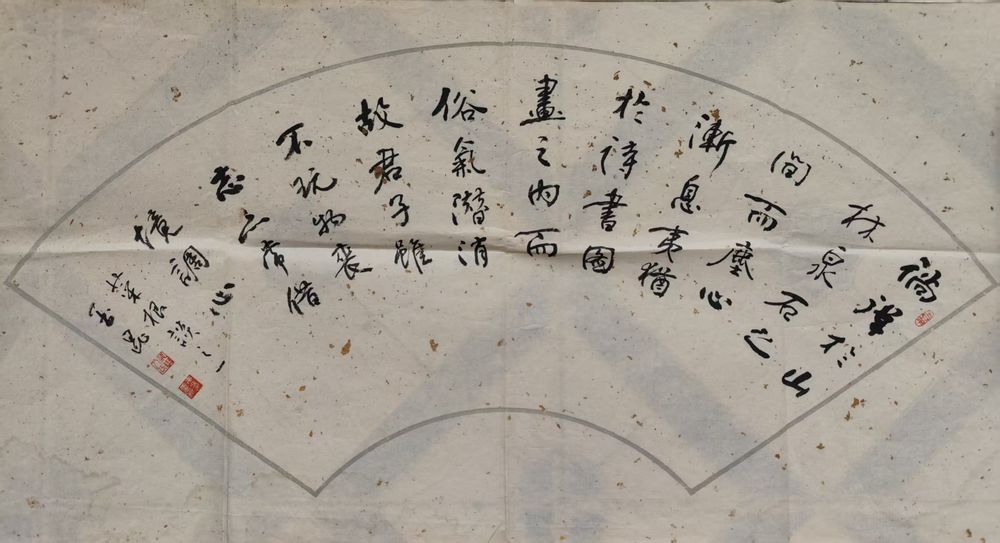 徜徉於山
林泉石之
間而塵心
漸息夷猶
於詩書圖
畫之內而
俗氣潛消
故君子雖
不玩物喪
志亦常借
境調心
菜根談之一